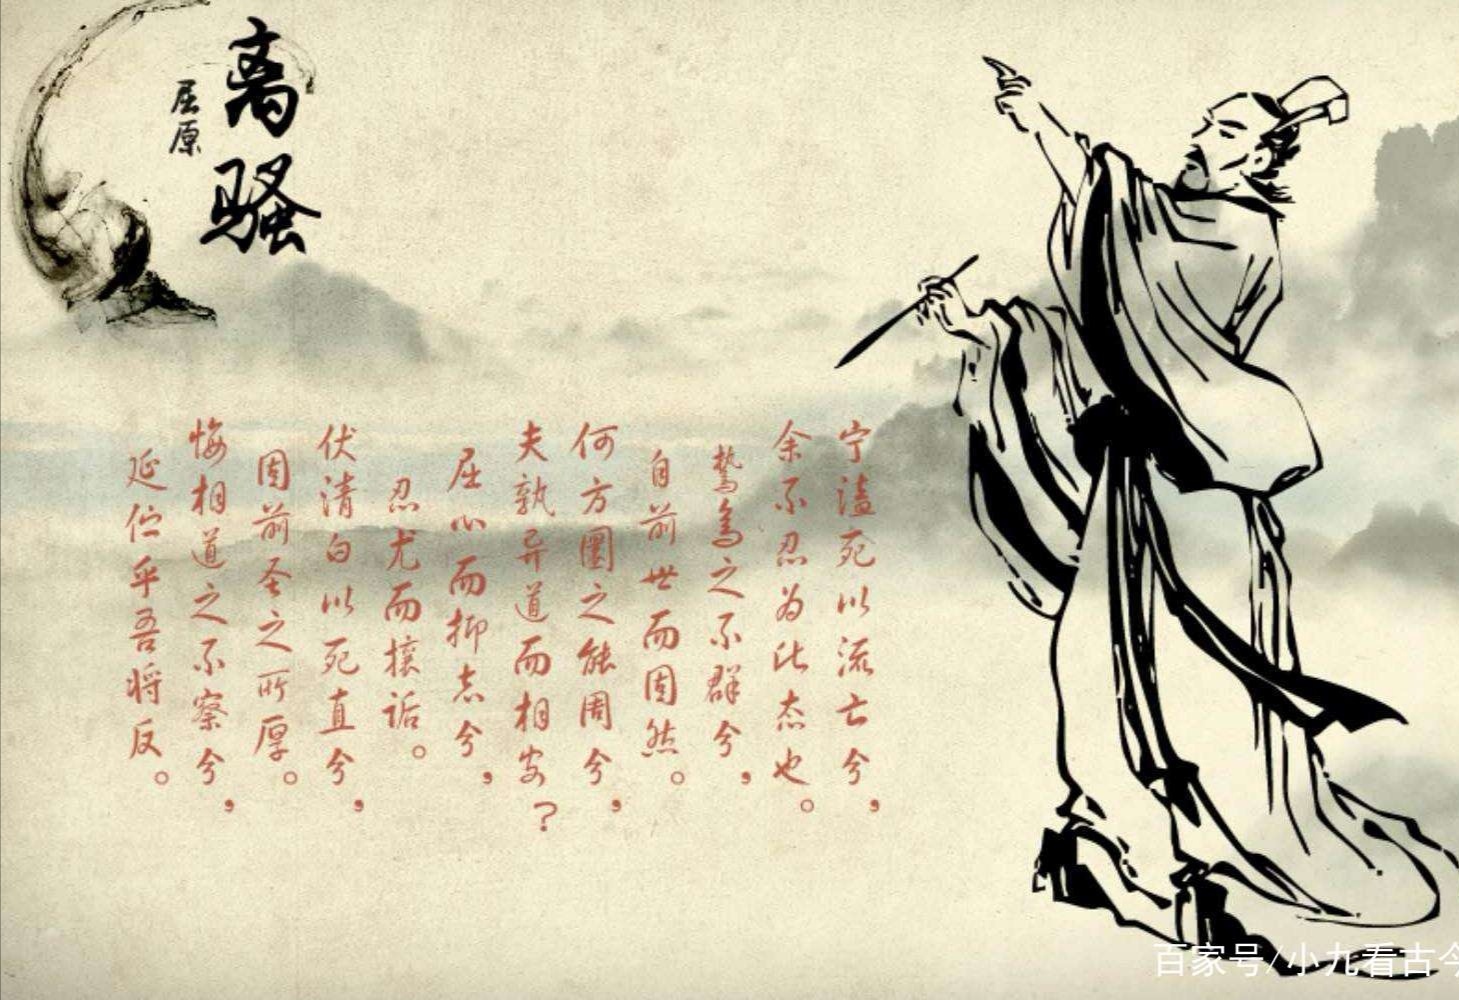 离骚
屈原
宁溘死以流亡兮，
余不忍为此态也。
鸷鸟之不群兮，
自前世而固然。
何方圜之能周兮，
夫孰异道而相安？
屈心而抑志兮，
忍尤而攘诟。
伏清白以死直兮，
固前圣之所厚。
悔相道之不察兮，
延伫乎吾将反。
百家号/小九看古今